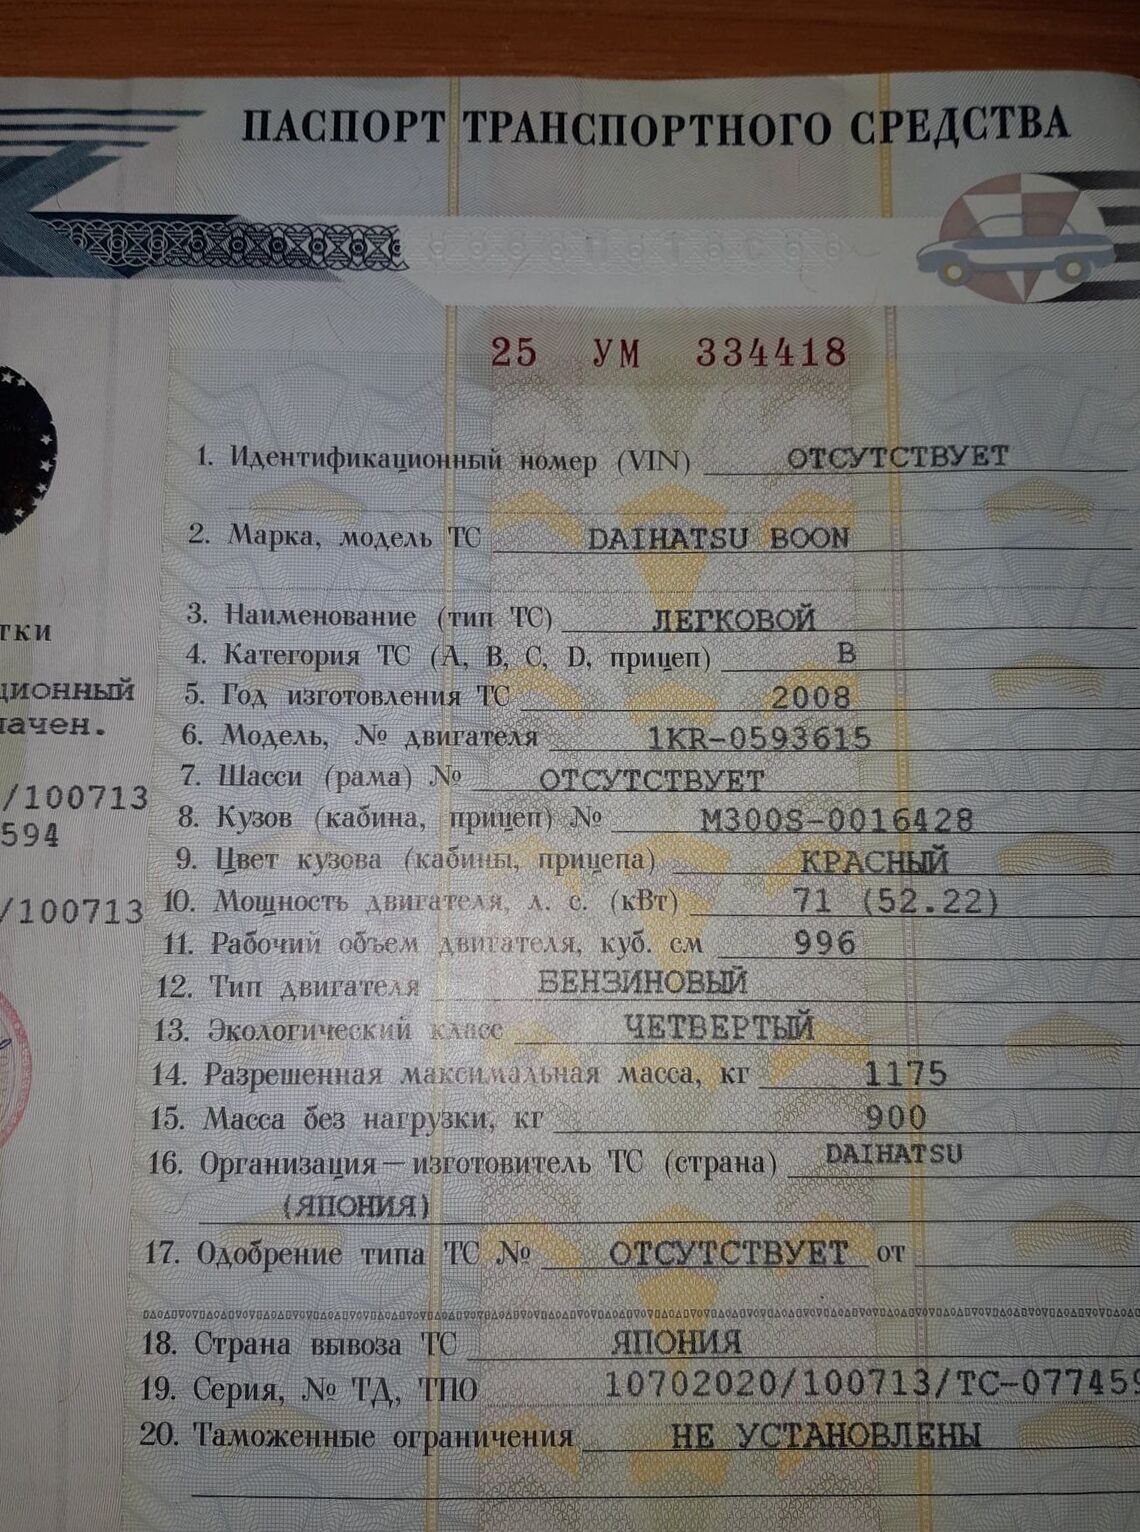 ПАСПОРТ ТРАНСПОРТНОГО СРЕДСТВА
25 УМ 334418
1. Идентификационный номер (VIN) ОТСУТСТВУЕТ
2. Марка, модель ТС DAIHATSU BOON
3. Наименование (тип ТС) ЛЕГКОВОЙ
4. Категория ТС (A, B, C, D, прицеп) B
5. Год изготовления ТС 2008
6. Модель, № двигателя 1KR-0593615
7. Шасси (рама) № ОТСУТСТВУЕТ
8. Кузов (кабина, прицеп) № M300S-0016428
9. Цвет кузова (кабины, прицепа) КРАСНЫЙ
10. Мощность двигателя, л. с. (кВт) 71 (52.22)
11. Рабочий объем двигателя, куб. см 996
12. Тип двигателя БЕНЗИНОВЫЙ
13. Экологический класс ЧЕТВЕРТЫЙ
14. Разрешенная максимальная масса, кг 1175
15. Масса без нагрузки, кг 900
16. Организация — изготовитель ТС (страна) DAIHATSU
(ЯПОНИЯ)
17. Одобрение типа ТС № ОТСУТСТВУЕТ от
18. Страна вывоза ТС ЯПОНИЯ
19. Серия, № ТД, ТПО 10702020/100713/ТС-077459
20. Таможенные ограничения НЕ УСТАНОВЛЕНЫ
тки
ционный
ачен.
/100713
594
/100713